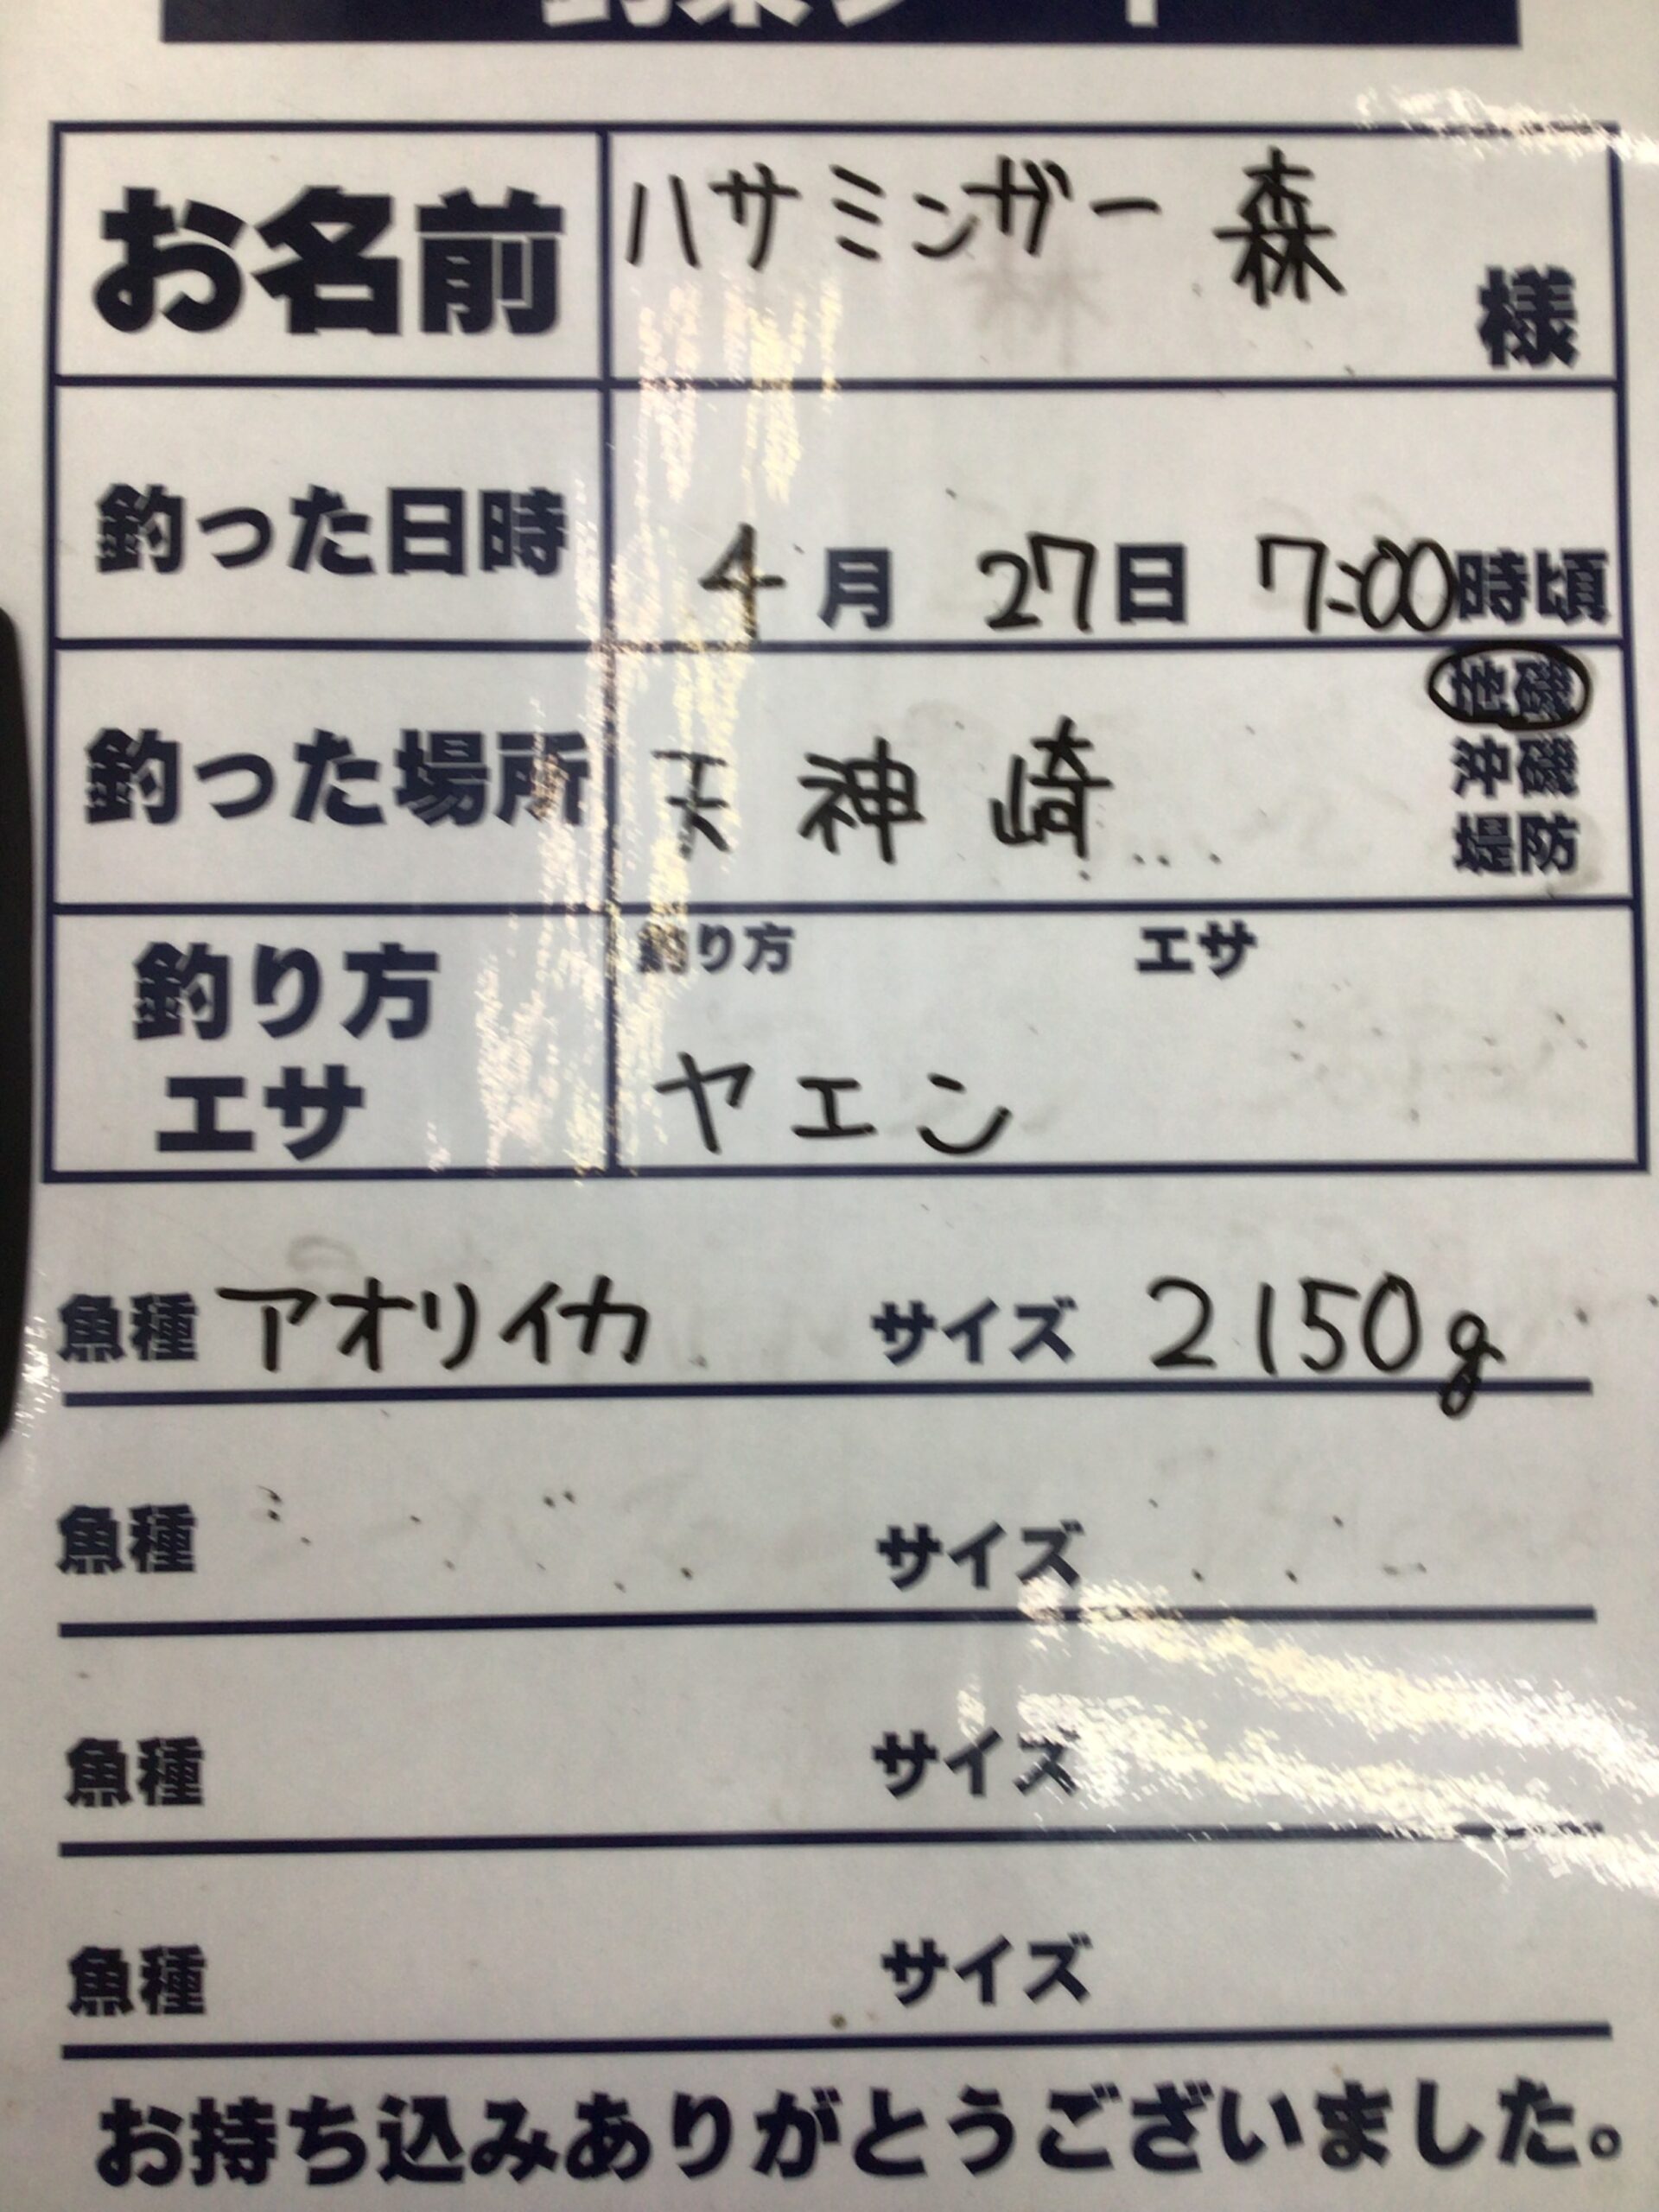 お名前 ハサミンガー 森 様
釣った日時 4月 27日 7:00時頃
地磯
釣った場所 天神崎 沖磯
堤防
釣り方 エサ
釣り方
エサ ヤエン
魚種 アオリイカ サイズ 2150g
魚種 サイズ
魚種 サイズ
魚種 サイズ
お持ち込みありがとうございました。